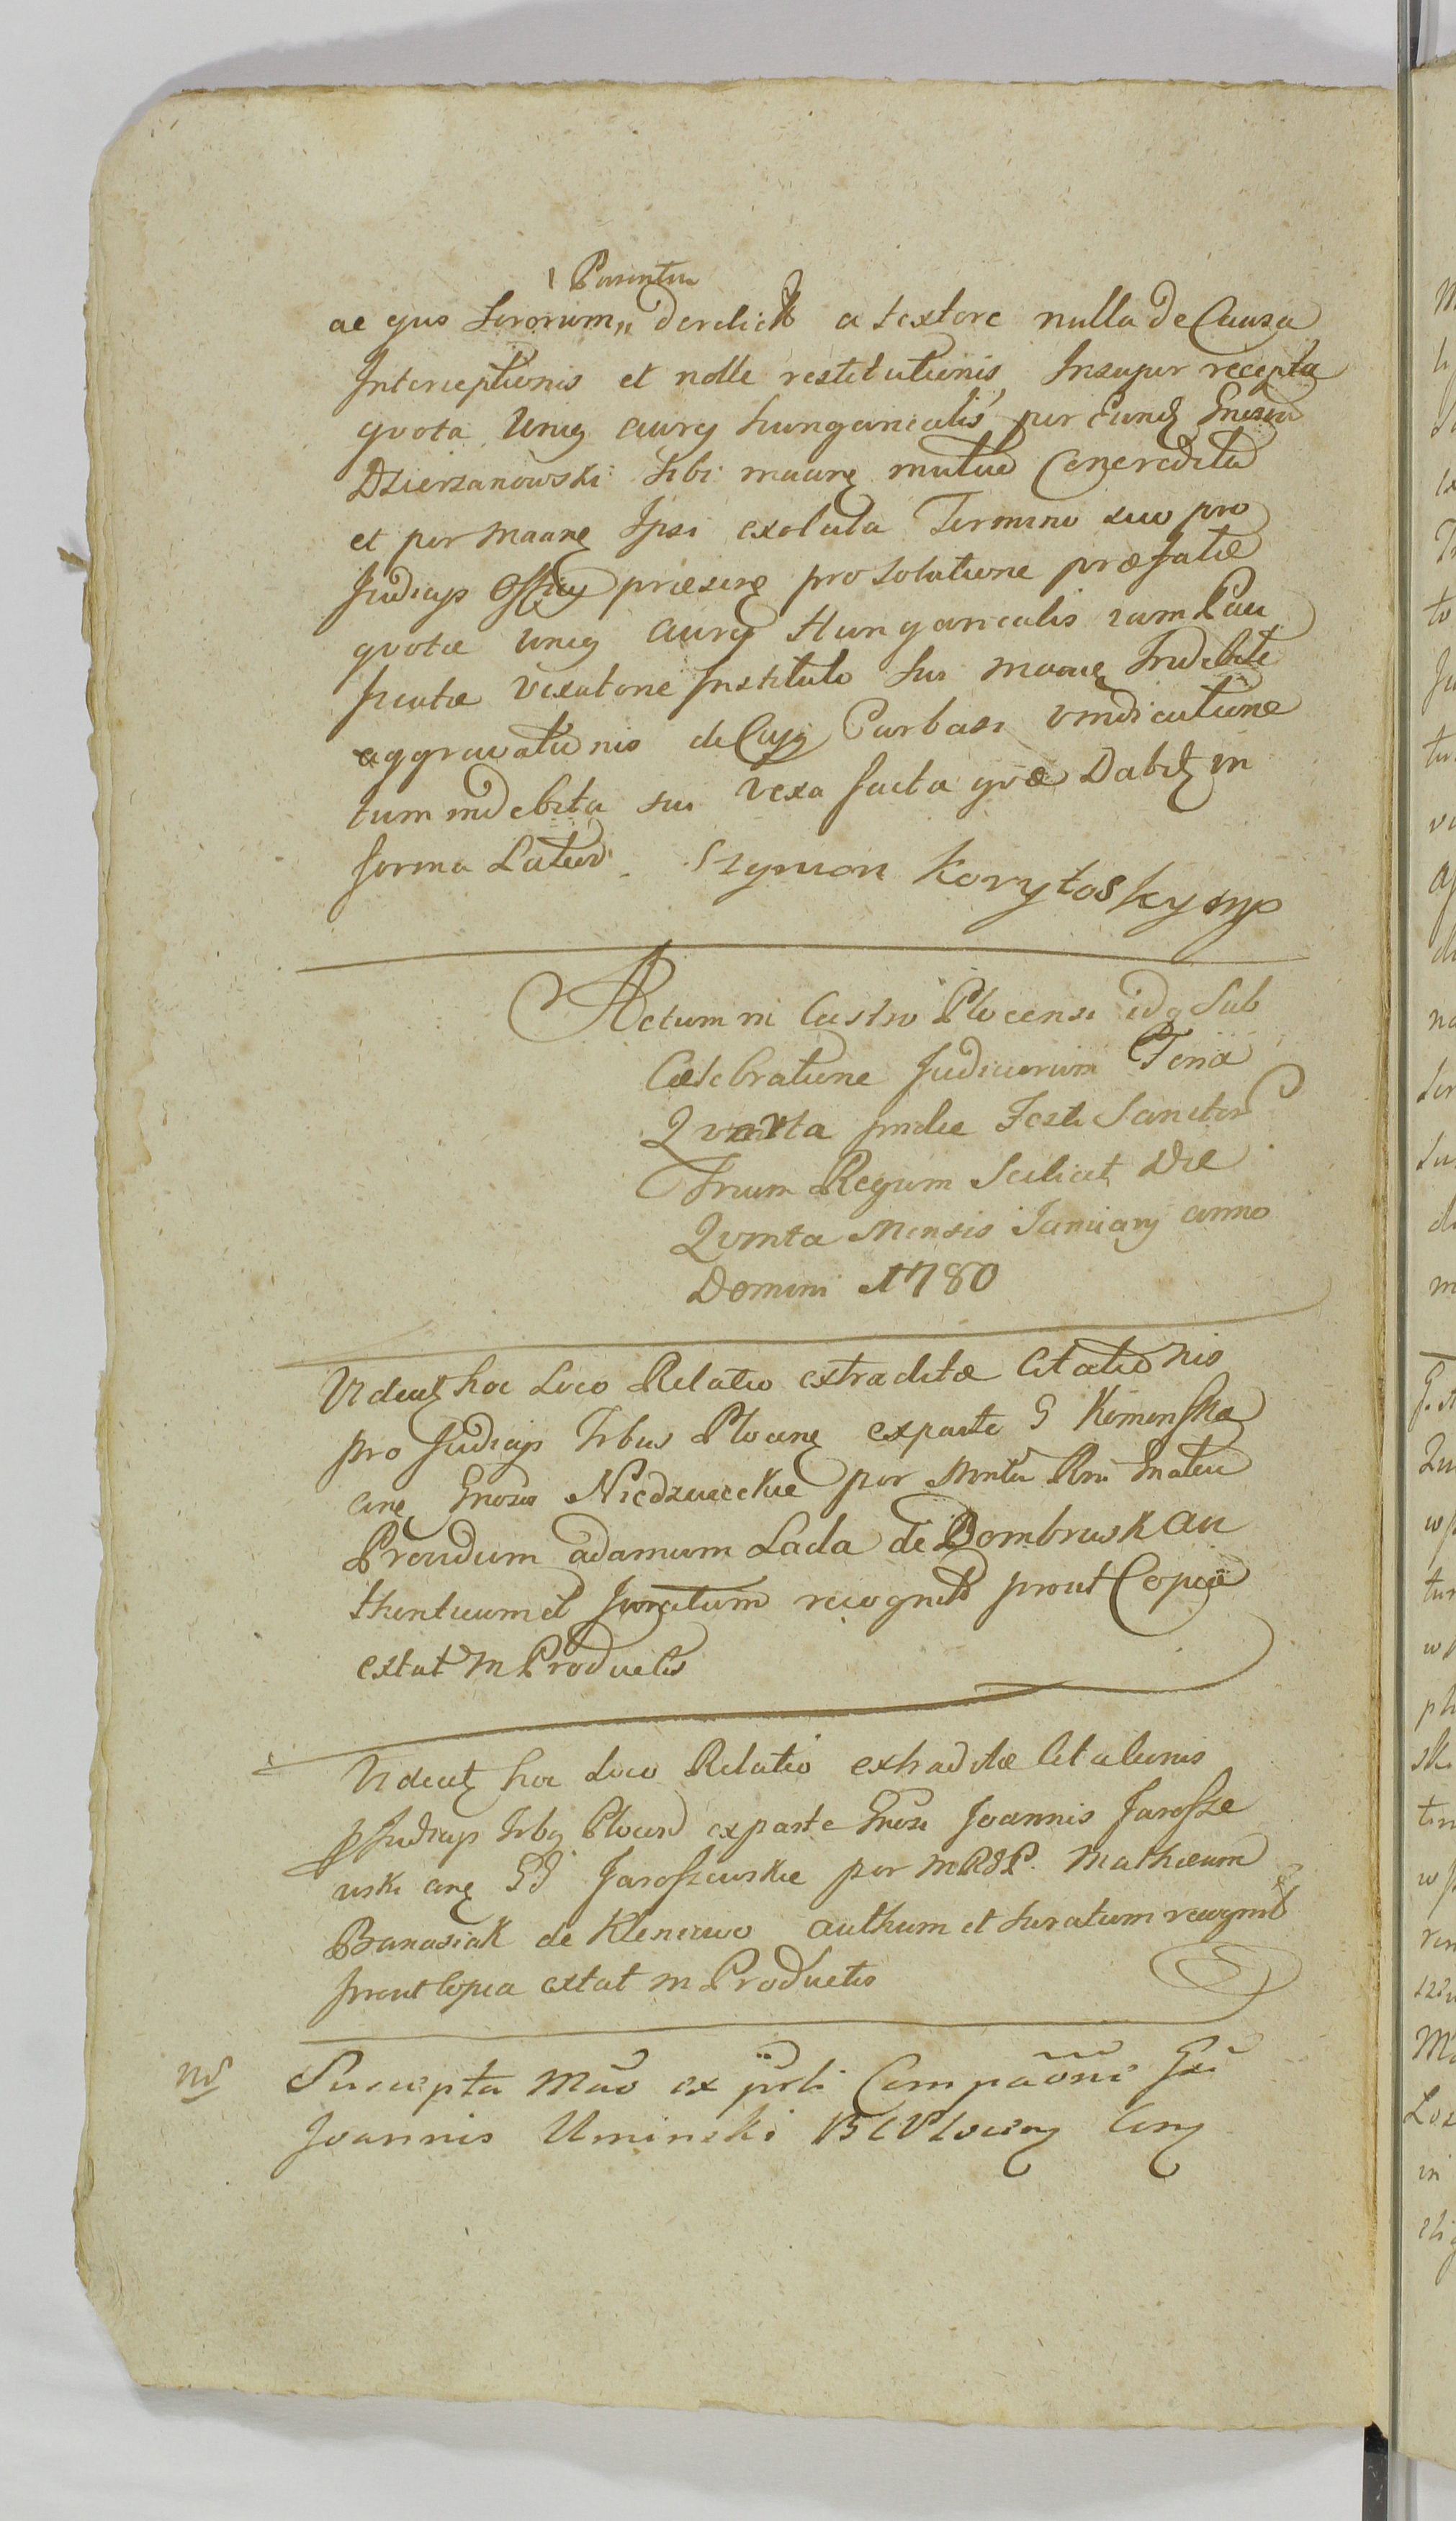 Parentum
ac ejus Sororum,, derelict a textore nulla de Causa
Interceptionis et nolle restitutionis Insuper recepta
quota Unig aurey hungaricalis per Eund Gnosum
Dzierzanowski Sibi maang mutue Concredita
et per maang Ipsi exoluta Termino suo pro
Judicys Officy praesing pro Solutione praefatae
quotae unig aurey Hungaricalis
vexatione Instituto Sui maang Indebite
aggravationis de Cujg Carbasi vindicatione
tum indebita sui vexa facta qvae Dabitq in
forma Latiori. Szymon Korytoskymp
Actum in Castro Plocensi idq Sub
Caelebratione Judiciorum Feria
Qvarta pridie Festi Sanctor
Trium Regum Scilicet Die
Qvinta Mensis January anno
Domini 1780
Videatq hoc Loco Relatio extraditae Citationis
pro Judicys Trbus Plocang exparte G Kemenska
cing Gnosos Niedzwieckie per Mintm Rni Gnalem
Providum adamum Lada de Dombrusk au
thenticum et Juratum recognit prout Copia
extat in Productis
Videatq hoc Loco Relatio extraditae Citationis
p Judicys Trbg Plocens exparte Gnosi Joannis Jarosze
wski cing GG Jaroszewskie per MRGP. Mathaeum
Banasiak de Kleniewo authum et Juratum recognit
prout Copia extat in Productis
NS Suscepta Mnō ex prti Compaōni Gsi
Joannis Uminski BCPlocen Cing